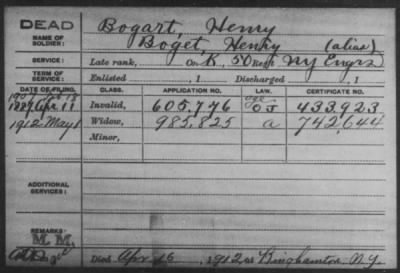 DEAD
NAME OF SOLDIER: Bogart, Henry
Boget, Henry (alias)
SERVICE: Late rank, Co. K, 50 Reg't NY Engrs
TERM OF SERVICE: Enlisted , 1 Discharged , 1
DATE OF FILING. CLASS. APPLICATION NO. LAW. CERTIFICATE NO.
1887 Apr 11 Invalid, 605,746 433,923
1912 May 1 Widow, 985,825 a 742,644
Minor,
ADDITIONAL SERVICES:
REMARKS:
Died Apr 16, 1912 at Binghamton N.Y.